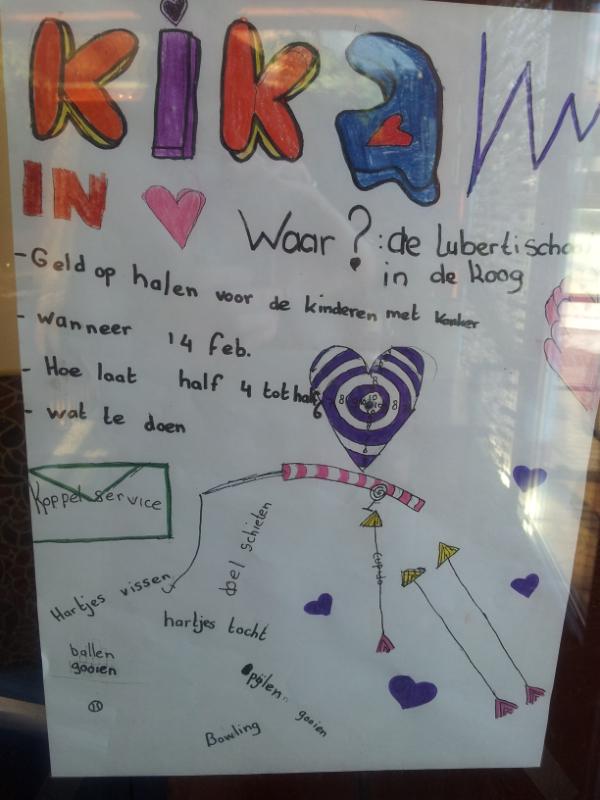 KiKa
IN
Waar?: de lubertischoo
in de Koog
- Geld op halen voor de kinderen met kanker
- wanneer 14 feb.
- Hoe laat half 4 tot half
6
- wat te doen
Koppel service
Hartjes vissen
doel schieten
hartjes tocht
ballen
gooien
pijlen gooien
Bowling